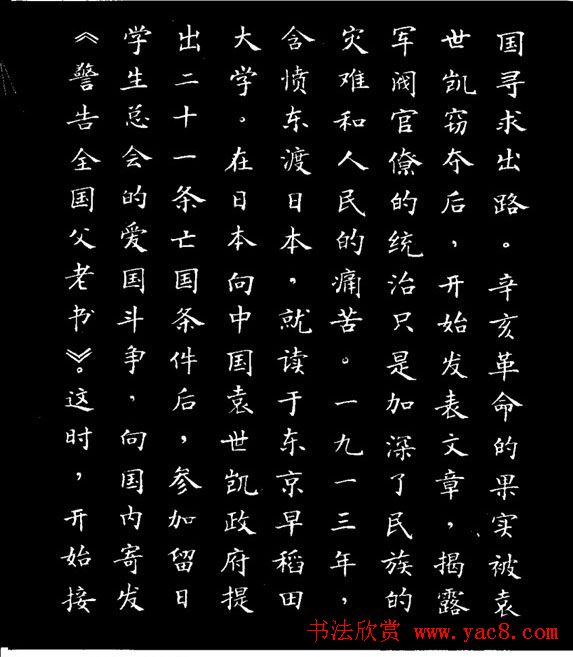 国寻求出路。辛亥革命的果实被袁
世凯窃夺后，开始发表文章，揭露
军阀官僚的统治只是加深了民族的
灾难和人民的痛苦。一九一三年，
含愤东渡日本，就读于东京早稻田
大学。在日本向中国袁世凯政府提
出二十一条亡国条件后，参加留日
学生总会的爱国斗争，向国内寄发
《警告全国父老书》。这时，开始接
书法欣赏 www.yac8.com